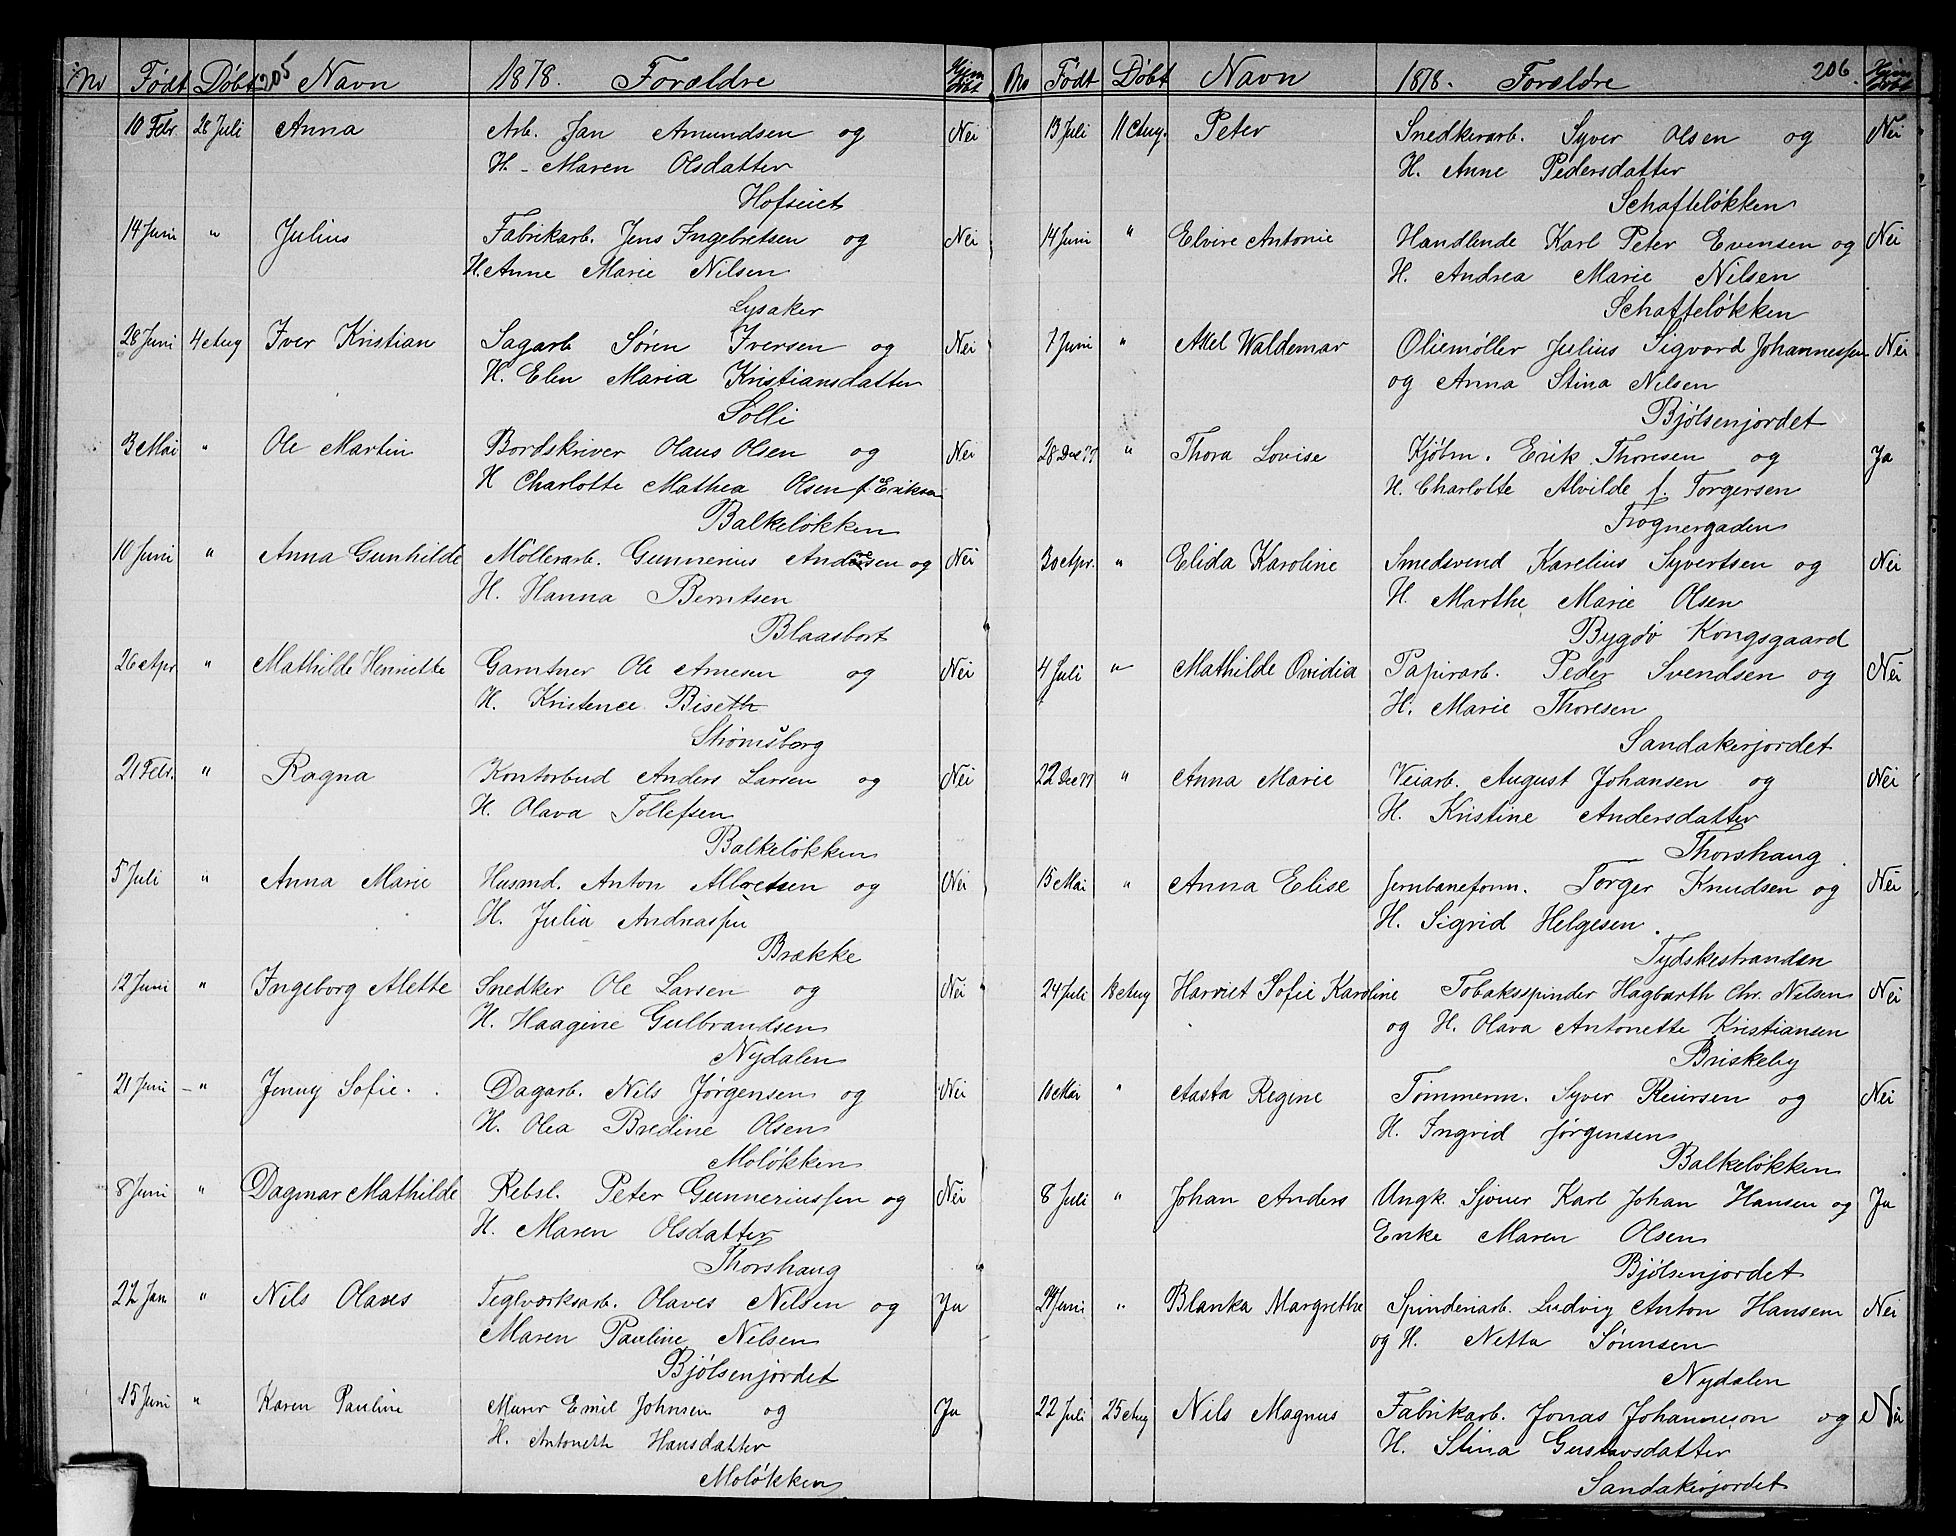 No Født Døbt 205 Navn 1878. Forældre Hjem døbt
10 Febr 28 Juli Anna Arb. Jan Amundsen og Nei
H. - Maren Olsdatter
Hofseiet
14 Juni " Julius Fabrikarb. Jens Ingebretsen og Nei
H. Anne Marie Nilsen
Lysaker
28 Juni 4 Aug Iver Kristian Sagarb Søren Iversen og Nei
H. Elen Maria Kristiansdatter
Solli
3 Mai " Ole Martin Bordskriver Olaus Olsen og Nei
H Charlotte Mathea Olsen f. Eriksen
Balkeløkken
10 Juni " Anna Gunhilde Møllerarb. Gunnerius Andersen og Nei
H. Hanna Berntsen
Blaasbort
26 Apr " Mathilde Henriette Gartner Ole Arnesen og Nei
H. Kristence Biseth
Strømsborg
21 Febr. " Ragna Kontorbud Anders Larsen og Nei
H. Olava Tollefsen
Balkeløkken
5 Juli " Anna Marie Husmd. Anton Albretsen og Nei
H. Julia Andreassen
Brække
12 Juni " Ingeborg Alette Snedker Ole Larsen og Nei
H. Haagine Gulbrandsen
Nydalen
21 Juni - " Jenny Sofie. Dagarb. Nils Jørgensen og Nei
H. Olea Bredine Olsen
Moløkken
8 Juni " Dagmar Mathilde Rebsl. Peter Gunneriussen og Nei
H. Maren Olsdatter
Thorshaug
22 Jan " Nils Olaves Teglværksarb. Olaves Nilsen og Ja
Maren Pauline Nilsen
Bjølsenjordet
15 Juni " Karen Pauline Murer Emil Johnsen og Ja
H. Antonette Hansdatter
Moløkken
No Født Døbt Navn 1878. Forældre 206. Hjem døbt
13 Juli 11 Aug. Peter Snedkerarb. Syver Olsen og Nei
H. Anne Pedersdatter
Schafteløkken
14 Juni " Elvire Antonie Handlende Karl Peter Evensen og Nei
H. Andrea Marie Nilsen
Schafteløkken
7 Juni " Axel Waldemar Oliemøller Julius Sigvard Johannessen Nei
og Anna Stina Nilsen
Bjølsenjordet
28 Dec 77 " Thora Lovise Kjøbm. Erik Thoresen og Ja
H. Charlotte Alvilde f. Torgersen
Frognergaden
30 Apr. " Elida Karoline Smedsvend Karelius Syvertsen og Nei
H. Marthe Marie Olsen
Bygdø Kongsgaard
4 Juli " Mathilde Ovidia Papirarb. Peder Svendsen og Nei
H. Marie Thoresen
Sandakerjordet
22 Dec 77 " Anna Marie Veiarb. August Johansen og Nei
H. Kristine Andersdatter
Thorshaug.
15 Mai " Anna Elise Jernbaneform. Torger Knudsen og Nei
H. Sigrid Helgesen.
Tydskestranden
24 Juli 18 Aug Harriet Sofie Karoline Tobaksspinder Hagbarth Chr. Nilsen Nei
og H. Olava Antonette Kristiansen
Briskeby
10 Mai " Aasta Regine Tømmerm. Syver Reiersen og Nei
H. Ingrid Jørgensen
Balkeløkken
8 Juli " Johan Anders Ungk. Sjouer Karl Johan Hansen og Ja
Enke Maren Olsen
Bjølsenjordet
Juni " Blanka Margrethe Spinderiarb. Ludvig Anton Hansen Nei
og H. Netta Sørensen
Nydalen
22 Juli 25 Aug Nils Magnus Fabrikarb. Jonas Johanneson og Nei
H. Stina Gustavsdatter
Sandakerjordet